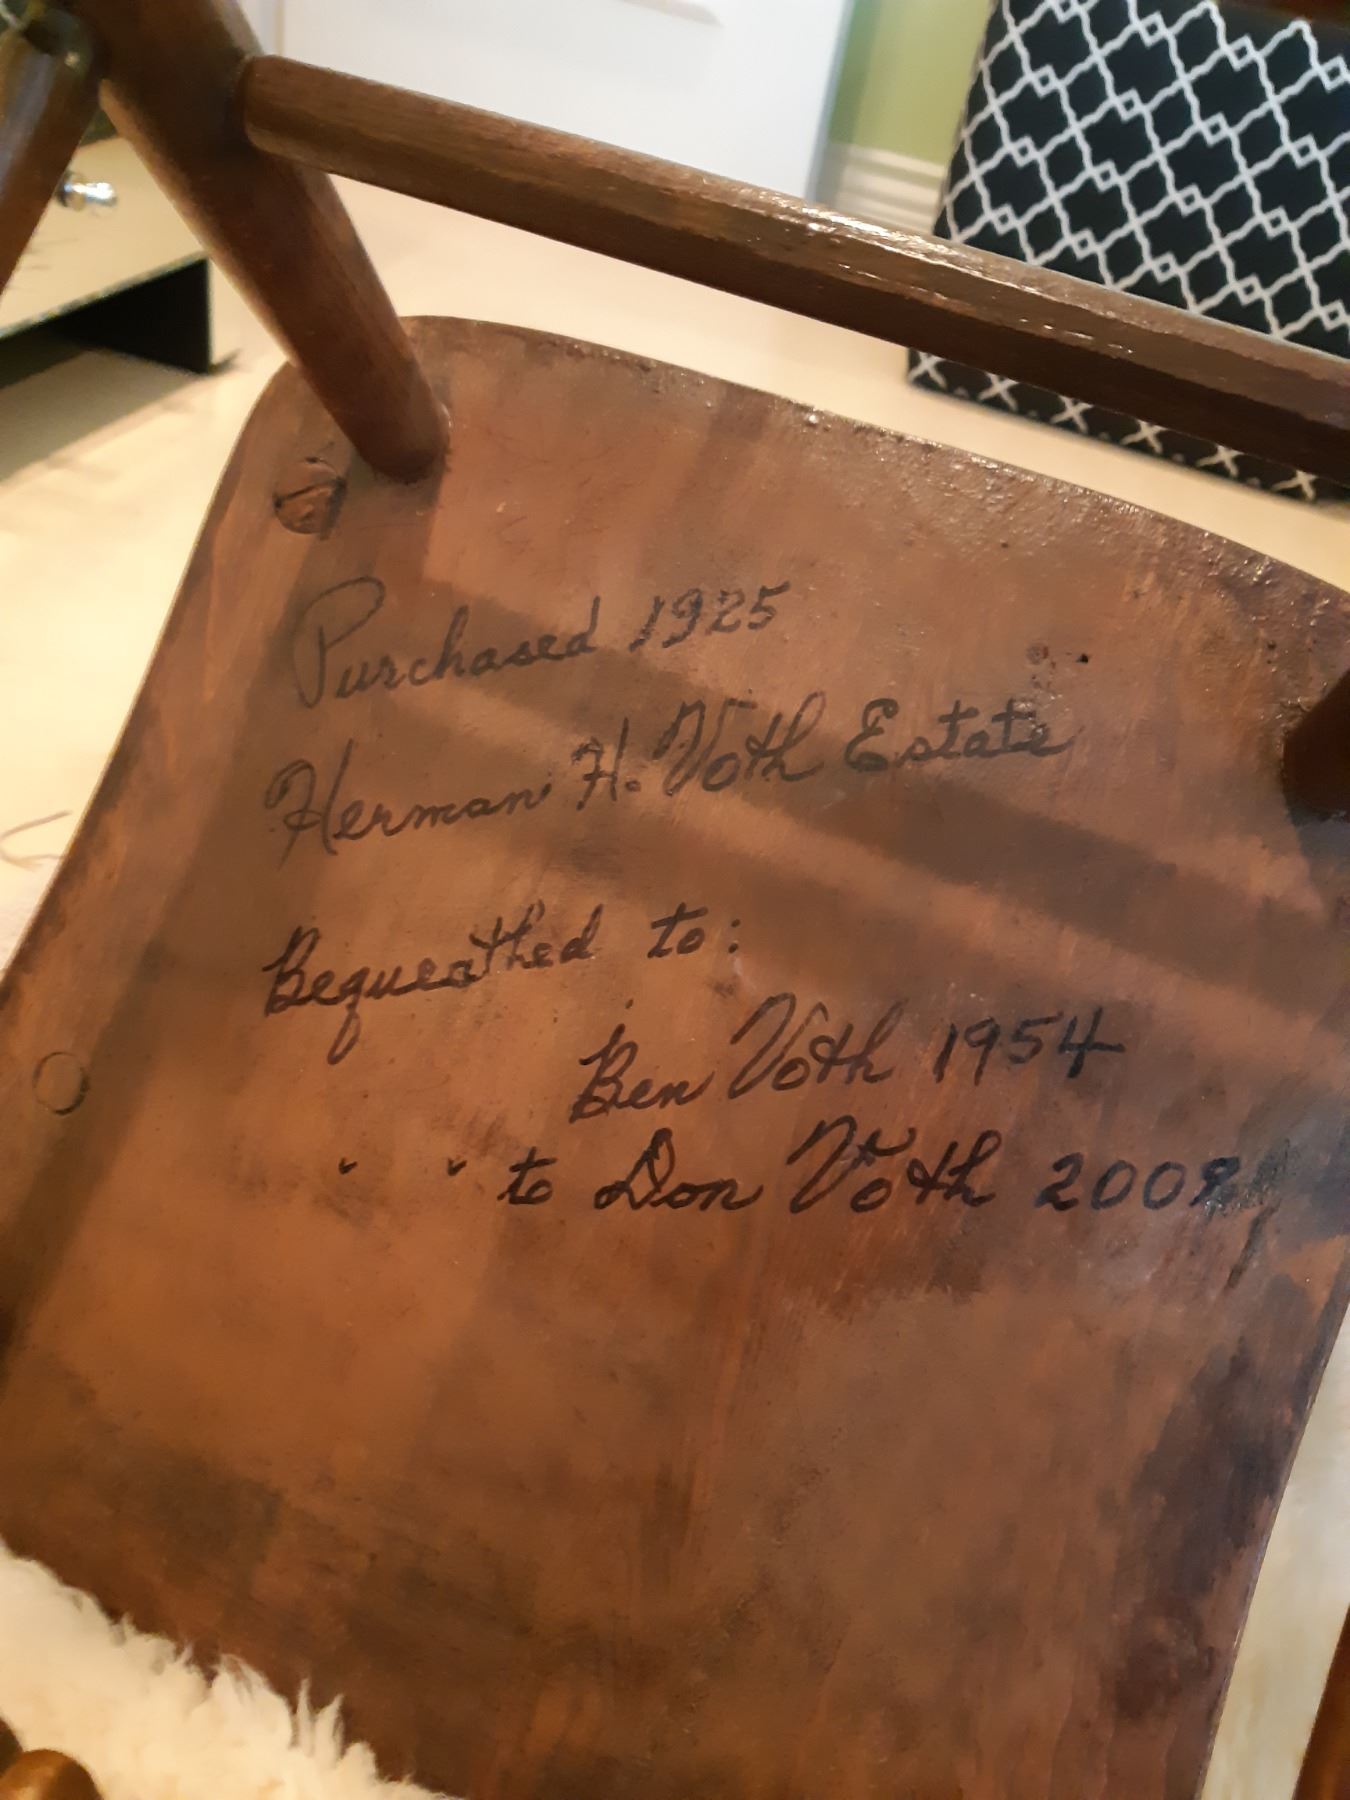 Purchased 1925
Herman H. Voth Estate
Bequeathed to:
Ben Voth 1954
" " to Don Voth